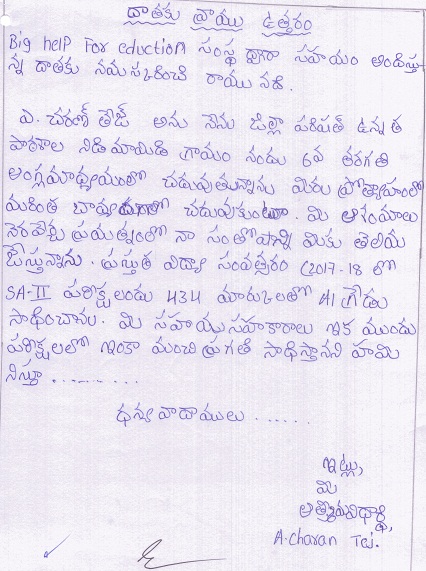 దాతకు వ్రాయు ఉత్తరం
Big help For eduction సంస్థ ద్వారా సహయం అందిస్తు-
న్న దాతకు నమస్కరించి రాయు నది.
ఎ. చరణ్ తేజ్ అను నేను జిల్లా పరిషత్ ఉన్నత
పాఠశాల నిడిమామిడి గ్రామం నందు 6వ తరగతి
ఆంగ్లమాధ్యమంలో చదువుతున్నాను మీరు ప్రోత్సాహంతో
మరింత చదువుకుంటా. మి ఆశయాలు
నెరవేర్చు ప్రయత్నంలో నా సంతోషాన్ని మికు తెలియ
జేస్తున్నాను. ప్రస్తుత విద్యా సంవత్సరం (2017-18 లో
SA-II పరిక్షలందు 434 మారుకలతో A1 గ్రేడు
సాధించాను. మి సహయసహకారాలు ఇక ముందు
పరిక్షలలో ఇంకా మంచి ప్రగతి సాధిస్తానని హమి
నిస్తూ..........
ధన్యవాదాములు......
ఇట్లు,
మి
A.charan Tej.